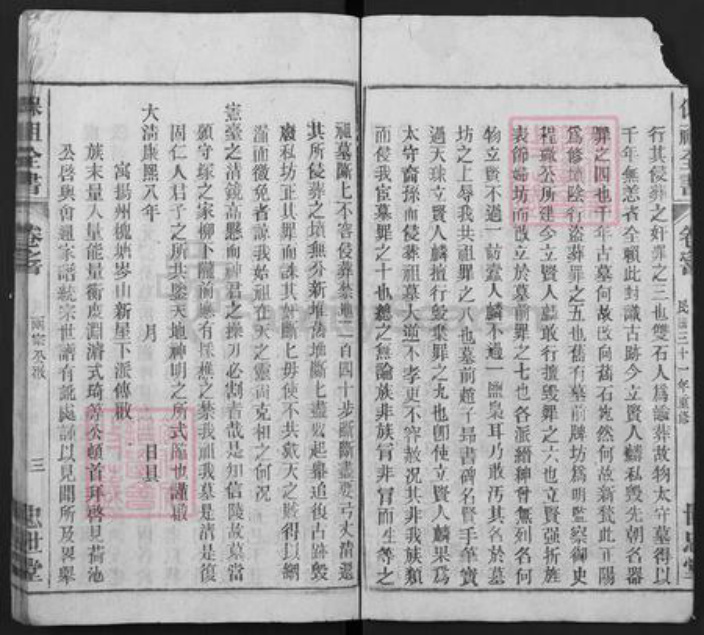 行其侵葬之奸罪之三也雙石人為諭葬故物太守墓得以
千年無恙者全賴此封識古跡今立賢人麟私毀先朝名器
罪之四也千年古墓何故改向舊石宛然何故新甃此正陽
為修墳陰行盜葬罪之五也舊有墓前牌坊為明監察御史
程 公所建今立賢人麟敢行擅毀罪之六也立賢强折旌
表節婦坊而改立於墓前罪之七也各派縉紳曾無列名何
物立賢不過一訪蠹人麟不過一鹽梟耳乃敢汚其名於墓
坊之上辱我共祖罪之八也墓前趙子昻書碑名賢手筆寶
過天球立賢人麟擅行毀棄罪之九也卽使立賢人麟果為
太守裔孫而侵葬祖墓大逆不孝更不容赦况其非我族類
而侵我宦墓罪之十也總之無論族非族胄非胄而生等之
祖墓斷上不容侵葬禁地一百四十步斷斷盡要弓丈清還
其所侵葬之墳無分新堆舊堆斷上盡數起舉追復古跡毀
廢私坊正其罪而誅其奸斷上毋使不共戴天之賊得以網
漏而徼免者諒我始祖在天之靈尚克相之何况
憲臺之清鏡高懸而神君之操刀必割者哉是知信陵故墓當
願守塚之家柳下隴前應有採樵之禁我祖我墓是清是復
固仁人君子之所共鑒天地神明之所式臨也謹檄
大清康熙八年　月　日具
寓揚州槐塘岑山新星下派傳檄
族末量入量能量衡虞淵濬式琦等公頓首拜啓見荷池
公啓與會通家譜統宗世譜有訛處謹以見聞所及畧舉
保祖全書
卷之
兩宗公檄
三
忠世堂
保祖全書
卷之
民國三十一年重修
世忠堂